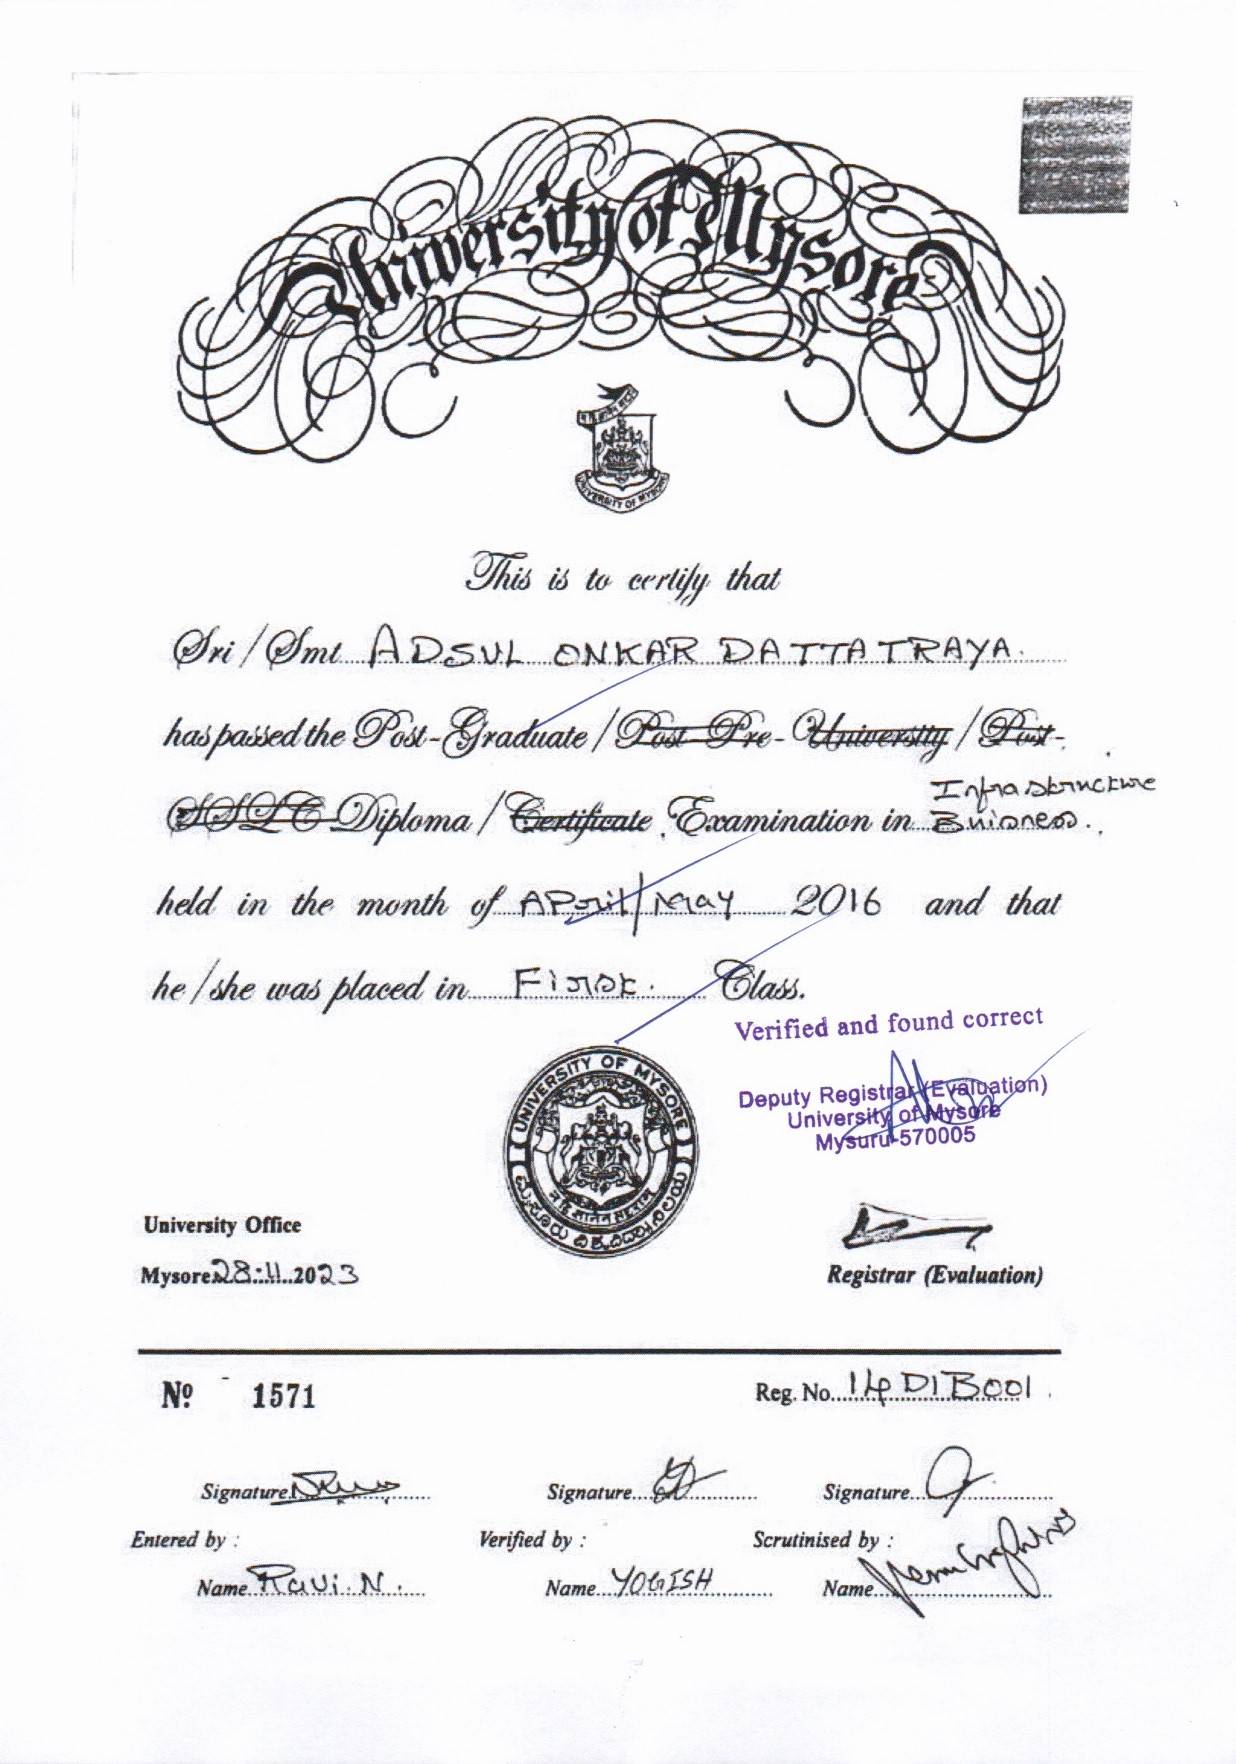 University of Mysore
UNIVERSITY OF MYSORE
This is to certify that
Sri / Smt ADSUL ONKAR DATTATRAYA.
has passed the Post-Graduate / Post Pre- University / Post-
SSLC Diploma / Certificate Examination in Infrastructure Buisness.
held in the month of April/May 2016 and that
he / she was placed in First. Class.
Verified and found correct
Deputy Registrar (Evaluation)
University of Mysore
Mysuru-570005
UNIVERSITY OF MYSORE
ಮೈಸೂರು ವಿಶ್ವವಿದ್ಯಾನಿಲಯ
University Office
Mysore 28.11.2023
Registrar (Evaluation)
No 1571
Reg. No. 14DIB001.
Signature
Signature
Signature
Entered by :
Verified by :
Scrutinised by :
Name Ravi. N.
Name YOGISH
Name